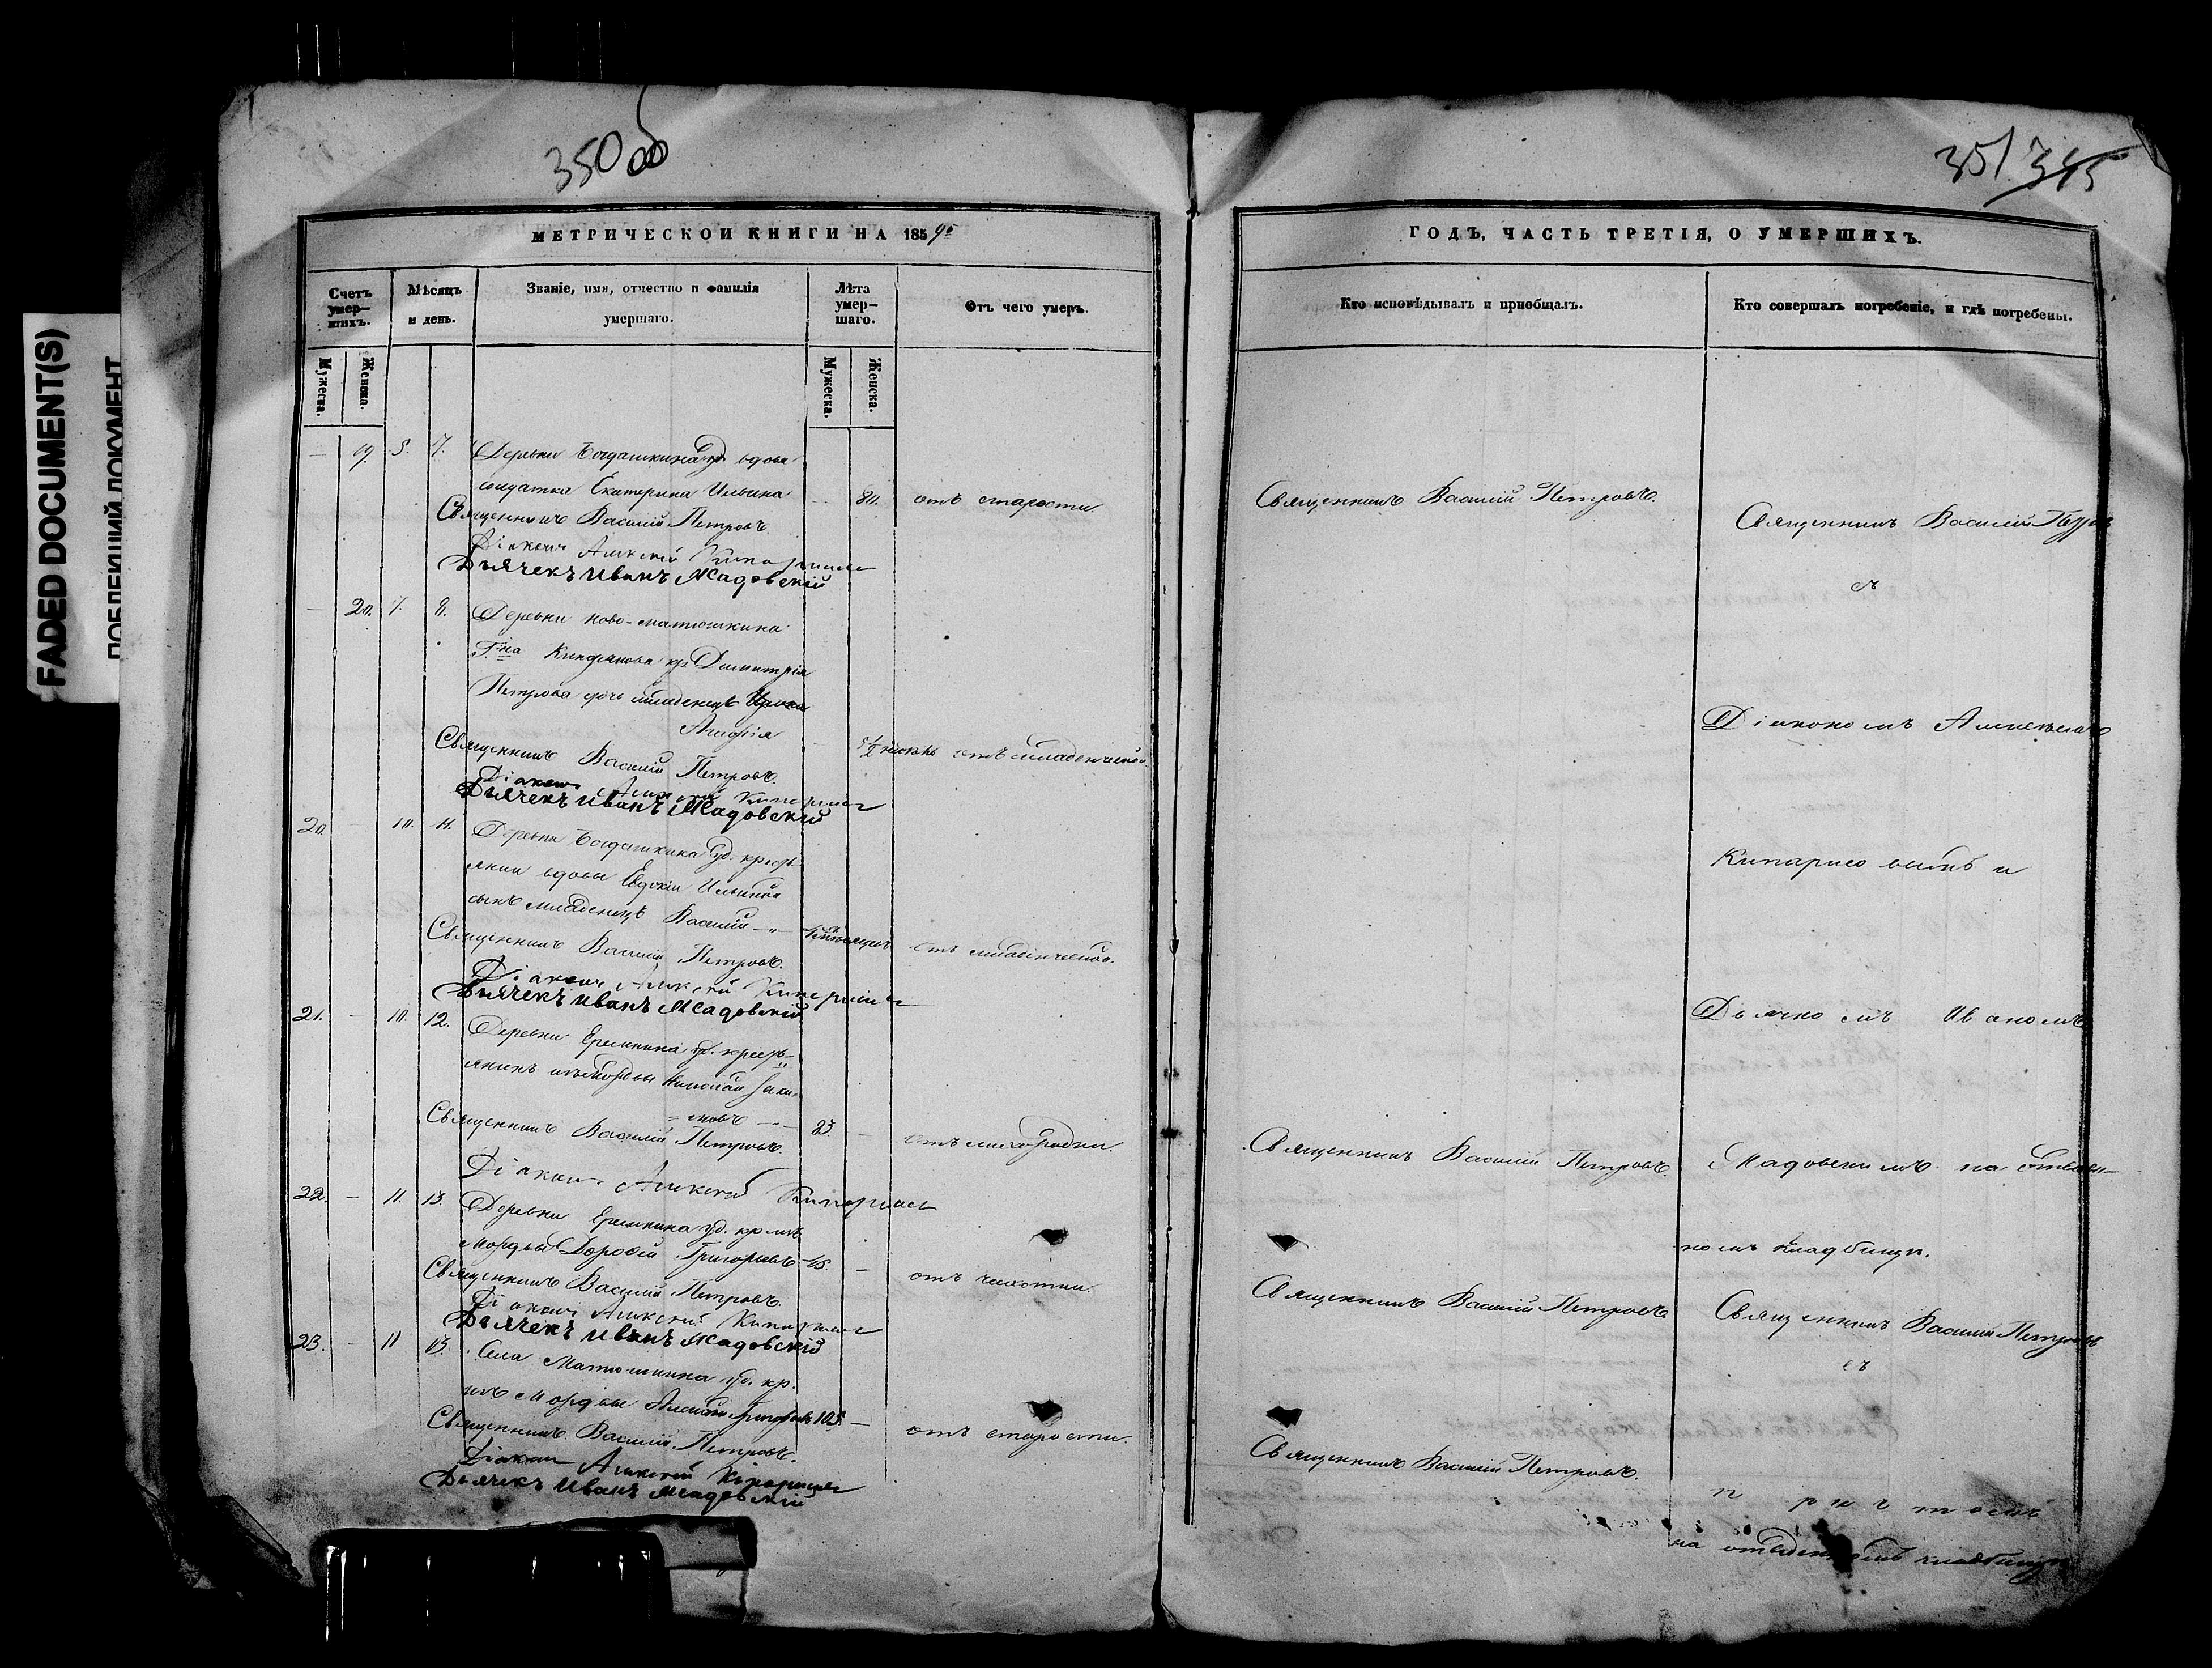 FADED DOCUMENT(S)
350 об
МЕТРИЧЕСКОЙ КНИГИ НА 185
Счетъ умер-
шихъ.
Мѣсяцъ
и день.
Званіе, имя, отчество и фамилія
умершаго.
Лѣта
умер-
шаго.
Отъ чего умеръ.
Мужеска.
Женска.
Мужеска.
Женска.
— 19. 5. 7. Деревни Богдашкина уд. вдова
солдатка Екатерина Ильина — 80. отъ старости
Священникъ Василій Петровъ.
Діаконъ Алексій Кипарисовъ
Дьячекъ Иванъ Жадовскій
— 20. 7. 8. Деревни Ново-матюшкина
Г-на кр. Димитрія
Петрова дочь младенецъ
Священникъ Василій Петровъ. отъ младенческой.
Діаконъ Алексій Кипарисовъ
Дьячекъ Иванъ Жадовскій
20. — 10. 11. Деревни Богдашкина уд. кресть-
янки вдовы Евдокіи Ильиной
сынъ младенецъ Василій
Священникъ Василій Петровъ. отъ младенческой.
Діаконъ Алексій Кипарисовъ
Дьячекъ Иванъ Жадовскій
21. — 10. 12. Деревни Еремкина уд. кресть-
янинъ изъ Мордвы Николай
Священникъ Василій Петровъ. 23. — отъ лихорадки.
Діаконъ Алексій Кипарисовъ
22. — 11. 13. Деревни Еремкина уд. кр. изъ
Мордвы Дорофей Григорьевъ — отъ чахотки.
Священникъ Василій Петровъ.
Діаконъ Алексій Кипарисовъ
Дьячекъ Иванъ Жадовскій
23. — 11 13. Села Матюшкина уд. кр.
изъ Мордвы Григорьевъ 105. — отъ старости.
Священникъ Василій Петровъ.
Діаконъ Алексій Кипарисовъ
Дьячекъ Иванъ Жадовскій
351 345
ГОДЪ, ЧАСТЬ ТРЕТІЯ, О УМЕРШИХЪ.
Кто исповѣдывалъ и пріобщалъ.
Кто совершалъ погребеніе, и гдѣ погребены.
Священникъ Василій Петровъ.
Священникъ Василій Петровъ
съ
Діакономъ Алексѣемъ
Кипарисовымъ и
Дьячкомъ Иваномъ
Священникъ Василій Петровъ
Жадовскимъ на отведен-
номъ кладбищѣ.
Священникъ Василій Петровъ
Священникъ Василій Петровъ
съ
Священникъ Василій Петровъ.
причтомъ
на отведенномъ кладбищѣ